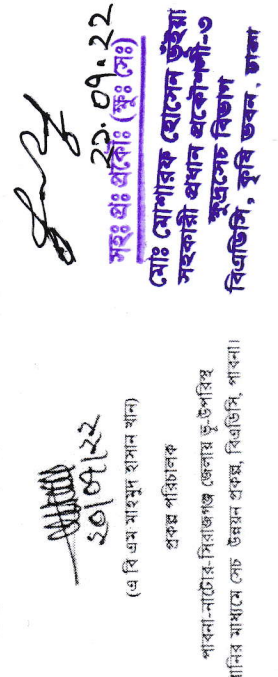 ২০/০৭/২২
(এ বি এম মাহমুদ হাসান খান)
প্রকল্প পরিচালক
পাবনা-নাটোর-সিরাজগঞ্জ জেলায় ভূ-উপরিস্থ
পানির মাধ্যমে সেচ উন্নয়ন প্রকল্প, বিএডিসি, পাবনা।
২০.০৭.২২
সহঃ প্রঃ প্রকৌঃ (ক্ষুঃ সেঃ)
মোঃ মোশারফ হোসেন ভূঁইয়া
সহকারী প্রধান প্রকৌশলী-৩
ক্ষুদ্রসেচ বিভাগ
বিএডিসি, কৃষি ভবন, ঢাকা